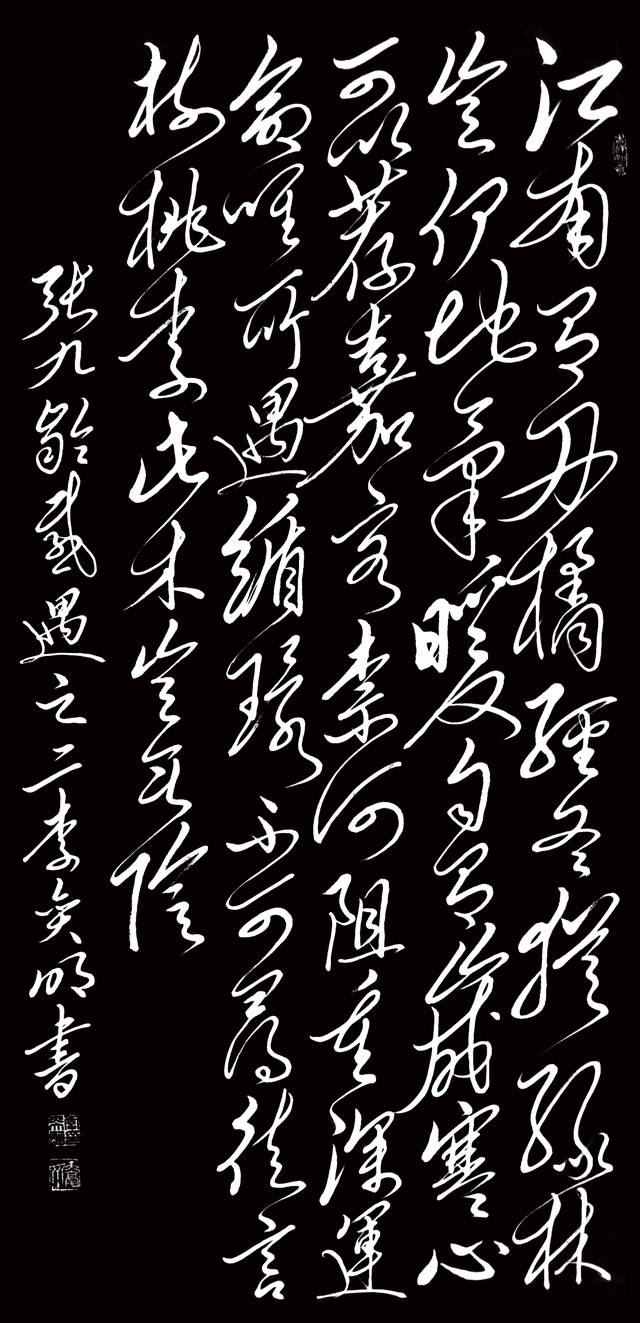 江南有丹橘經冬猶綠林
豈伊地氣暖自有歲寒心
可以荐嘉客奈何阻重深運
命唯所遇循環不可尋徒言
樹桃李此木豈無陰
張九齡感遇之二李明書